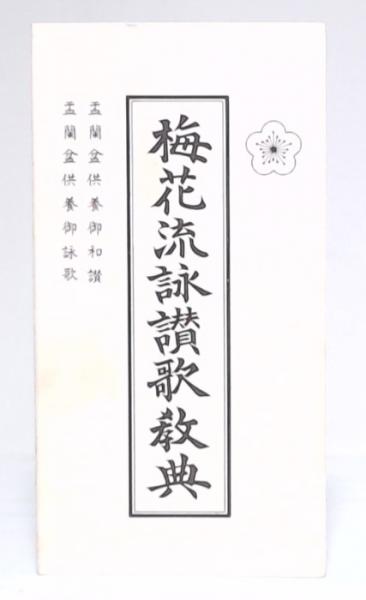 梅花流詠讃歌教典
盂蘭盆供養御和讃
盂蘭盆供養御詠歌